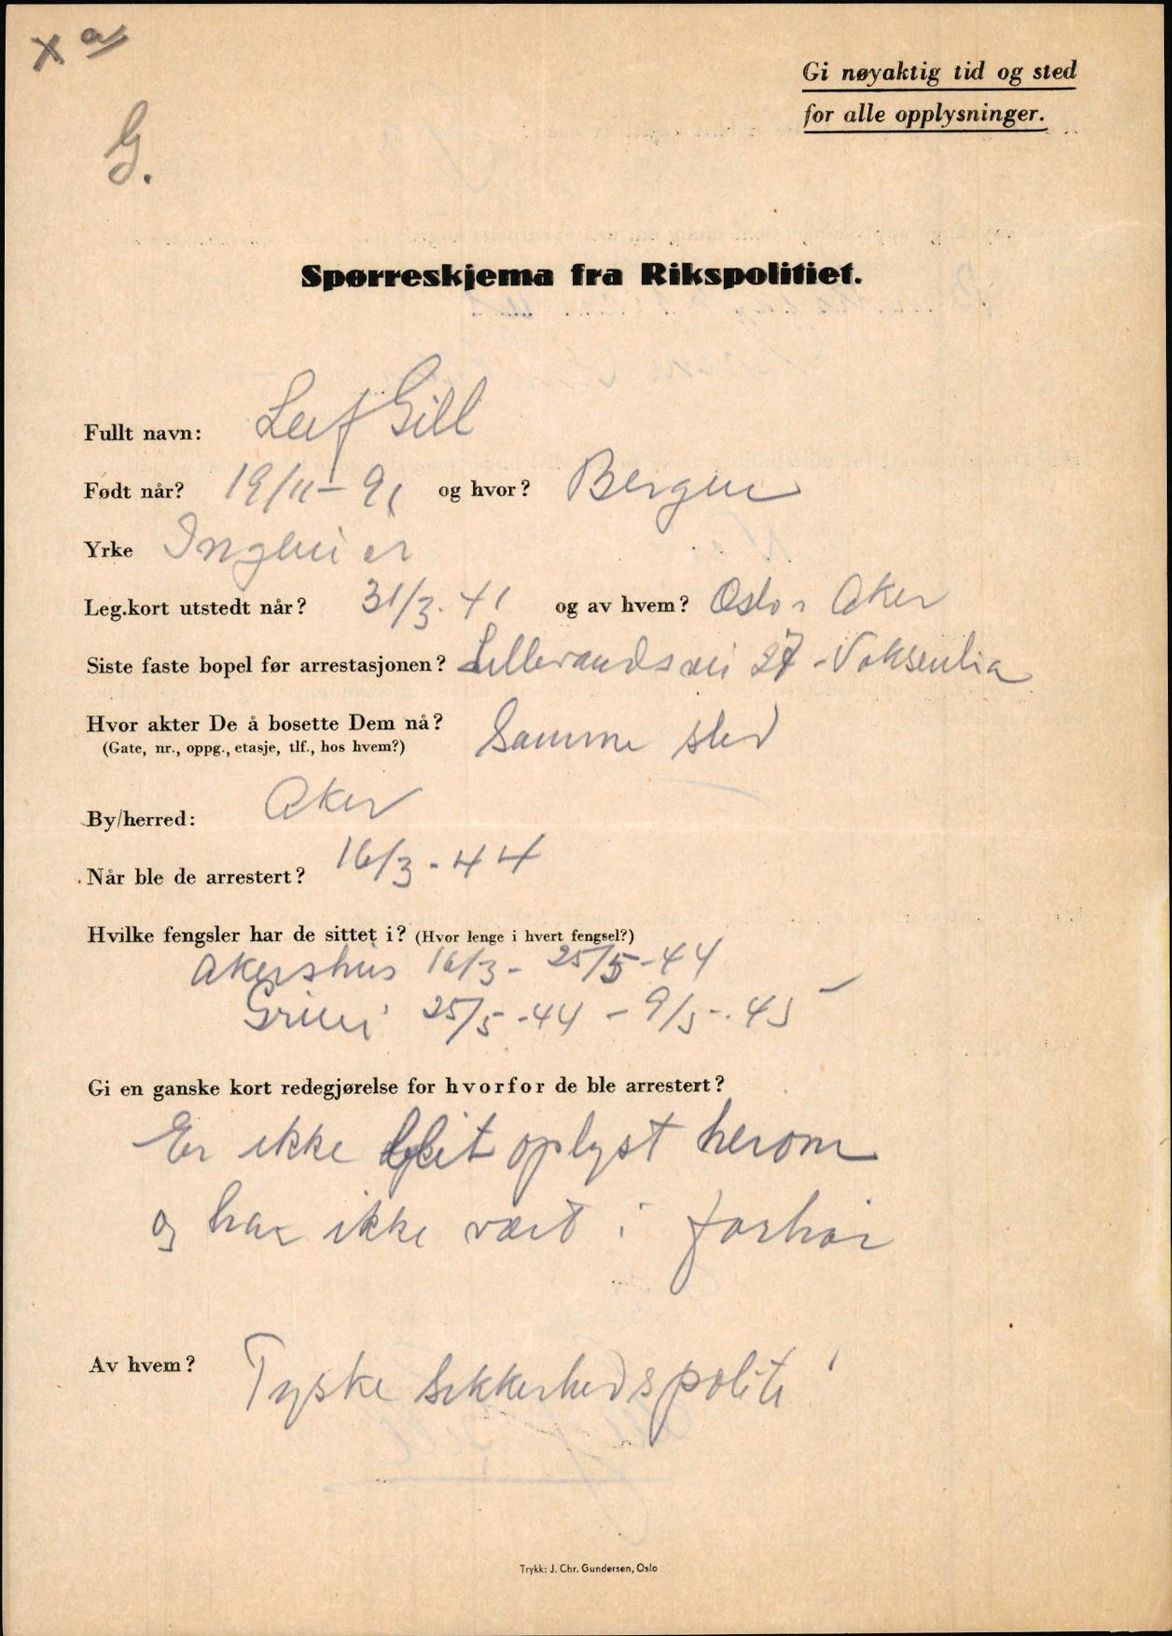 X a
Gi nøyaktig tid og sted
for alle opplysninger.
G.
Spørreskjema fra Rikspolitiet.
Fullt navn: Leif Gill
Født når? 19/11-91 og hvor? Bergen
Yrke Ingeniør
Leg.kort utstedt når? 31/3.41 og av hvem? Oslo, Aker
Siste faste bopel før arrestasjonen? Lillevandsvei 27 - Voksenlia
Hvor akter De å bosette Dem nå? Samme sted
(Gate, nr., oppg., etasje, tlf., hos hvem?)
By/herred: Aker
Når ble de arrestert? 16/3.44
Hvilke fengsler har de sittet i? (Hvor lenge i hvert fengsel?)
Akershus 16/3 - 25/5-44
Grini 25/5-44 - 9/5-45
Gi en ganske kort redegjørelse for hvorfor de ble arrestert?
Er ikke blit oplyst herom
og har ikke vært i forhør
Av hvem? Tyske Sikkerhedspoliti
Trykk: J. Chr. Gundersen, Oslo